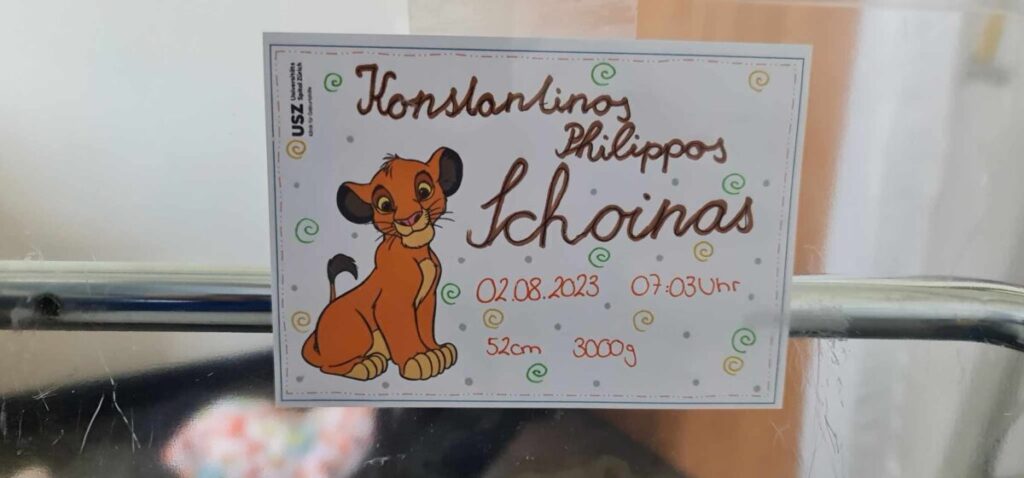 USZ Universitäts
Spital Zürich
Klinik für Geburtshilfe
Konstantinos
Philippos
Schoinas
02.08.2023 07:03 Uhr
52cm 3000g